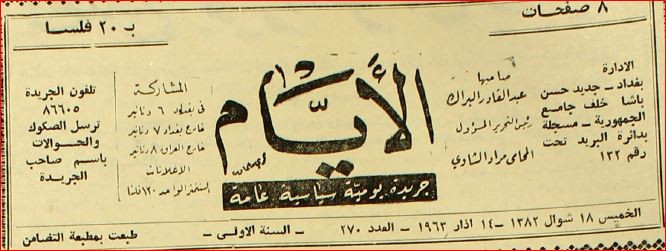 ٨ صفحات
ب ٢٠ فلسا
الادارة
بغداد ـ جديد حسن
باشا خلف جامع
الجمهورية ـ مسجلة
بدائرة البريد تحت
رقم ١٣٢
صاحبها
عبدالقادر البراك
رئيس التحرير المسؤول
المحامي مراد الشاوي
الأيام
جريدة يومية سياسية عامة
المشاركة
في بغداد ٦ دنانير
خارج بغداد ٧ دنانير
خارج العراق ٨ دنانير
الاعلانات
الواحد ١٢٠ فلسا
تلفون الجريدة
٨٦٦٠٥
ترسل الصكوك
والحوالات
باسم صاحب
الجريدة
الخميس ١٨ شوال ١٣٨٢ ـ ١٤ اذار ١٩٦٣ ـ العدد ٢٧٠ ـ السنة الاولى ـ طبعت بمطبعة التضامن